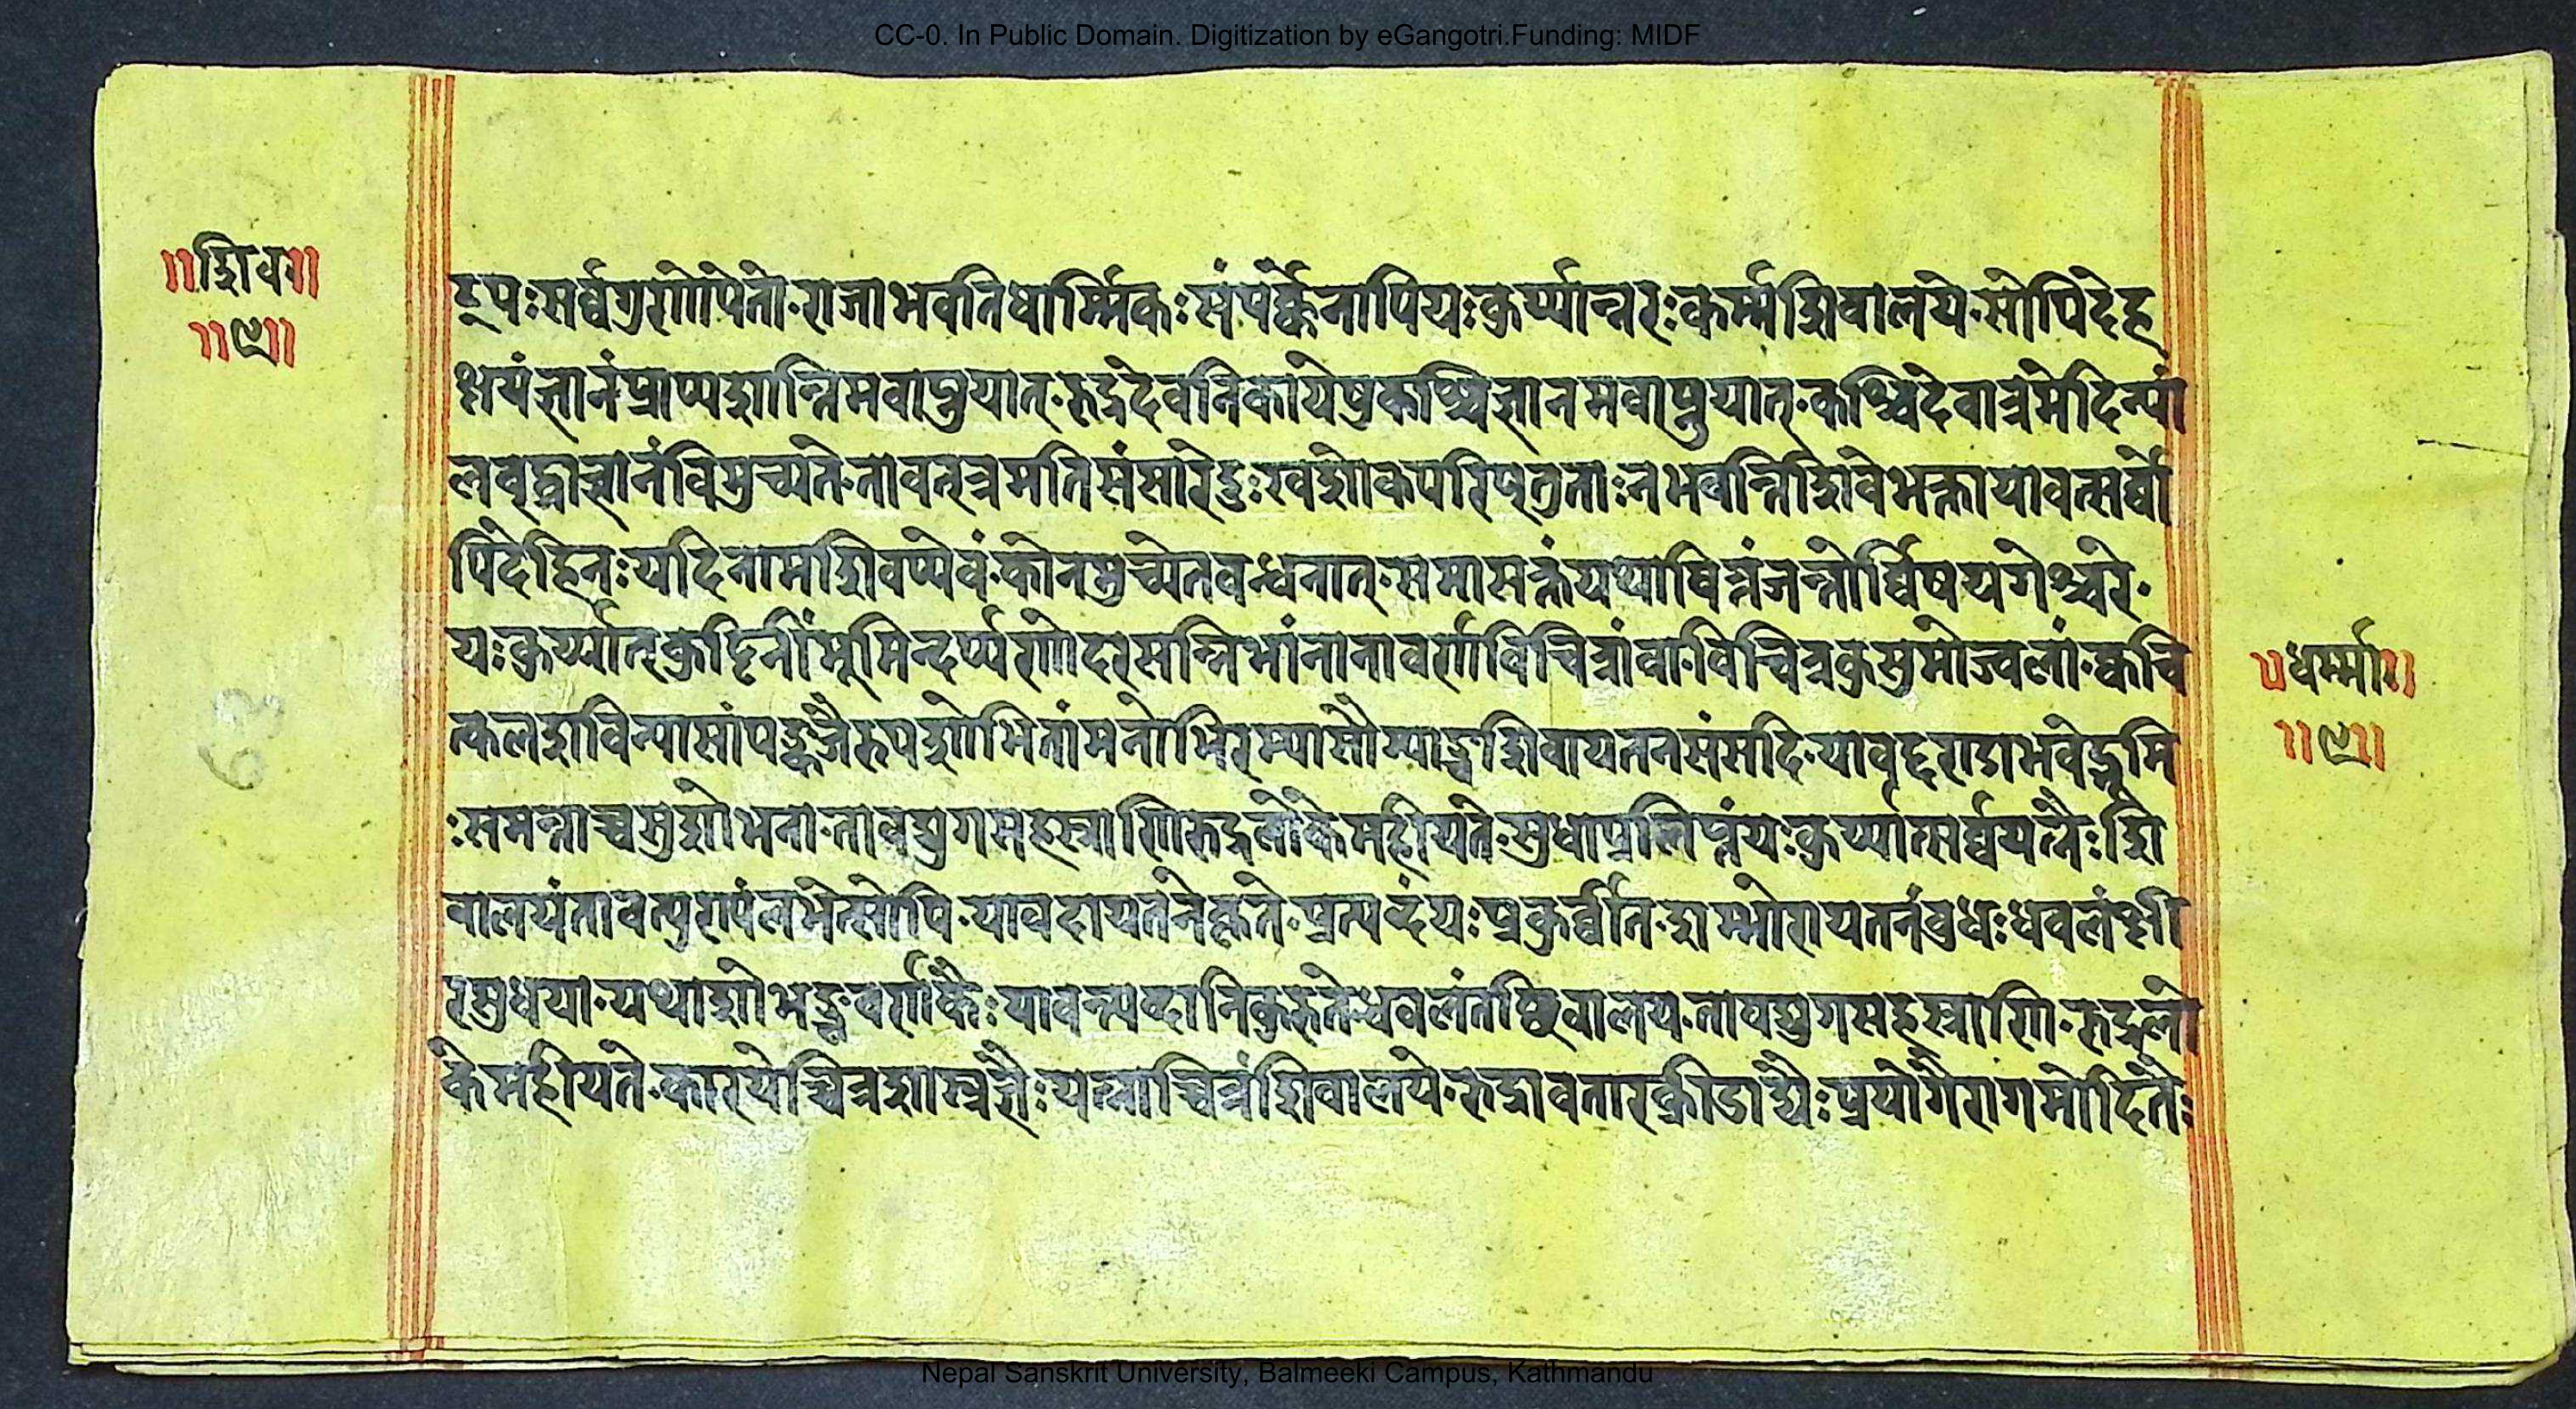 CC-0. In Public Domain. Digitization by eGangotri.Funding: MIDF
॥शिव॥
॥९॥
द्रूपः सर्व्वगुणोपेतो·राजा भवति धार्म्मिकः संपर्क्केनापि यः कुर्य्यान्नरः कर्म्म शिवालये·सोपि देह
क्षयं ज्ञानं प्राप्य शान्तिमवाप्नुयात्·रुद्रदेवनिकायेषु कश्चिज्ज्ञानमवाप्नुयात्·कश्चिदेवात्र मेदिन्यां
लब्ध्वा ज्ञानं विमुच्यते·तावत् भ्रमति संसारे दुःखशोकपरिप्लुताः न भवन्ति शिवे भक्ता यावत्सर्व्वे
पि देहिनः यदि नाम शिवप्येवं·को न मुच्येत बन्धनात्·समासक्तं यथा चित्तं जन्तोर्व्विषयगेश्चरे·
यः कुर्य्यात् कुट्टिनीं भूमिन्दर्प्पणोदरसन्निभां नानावर्णविचित्रां वा·विचित्रकुसुमोज्वलां·क्वचि
त्कलशविन्यासां पङ्कजैरुपशोभितां मनोभिरम्या सौम्याञ्च शिवायतनसंसदि·यावद्दण्डा भवेद्भूमि
ः समन्ताच्च सुशोभना·तावद्युगसहस्राणि रुद्रलोके महीयते·सुधाप्रलिप्तं यः कुर्य्यात्सर्व्वयत्नैः शि
वालयं तावत्पुण्यं लभेत्सोपि·यावदायतने कृते·प्रत्यब्दं यः प्रकुर्व्वीत·शम्भोरायतनं बुधः धवलं क्षी
रसुधया·यथाशोभञ्च वर्णकैः यावन्त्यब्दानि कुरुते धवलं तच्छिवालयं·तावद्युगसहस्राणि·रुद्रलो
के महीयते·कारयेच्चित्रशास्त्रज्ञैः यत्नाच्चित्रं शिवालये·रुद्रावतारक्रीडाद्यैः प्रयोगैरागमोदितैः
॥धर्म्म॥
॥९॥
63
Nepal Sanskrit University, Balmeeki Campus, Kathmandu